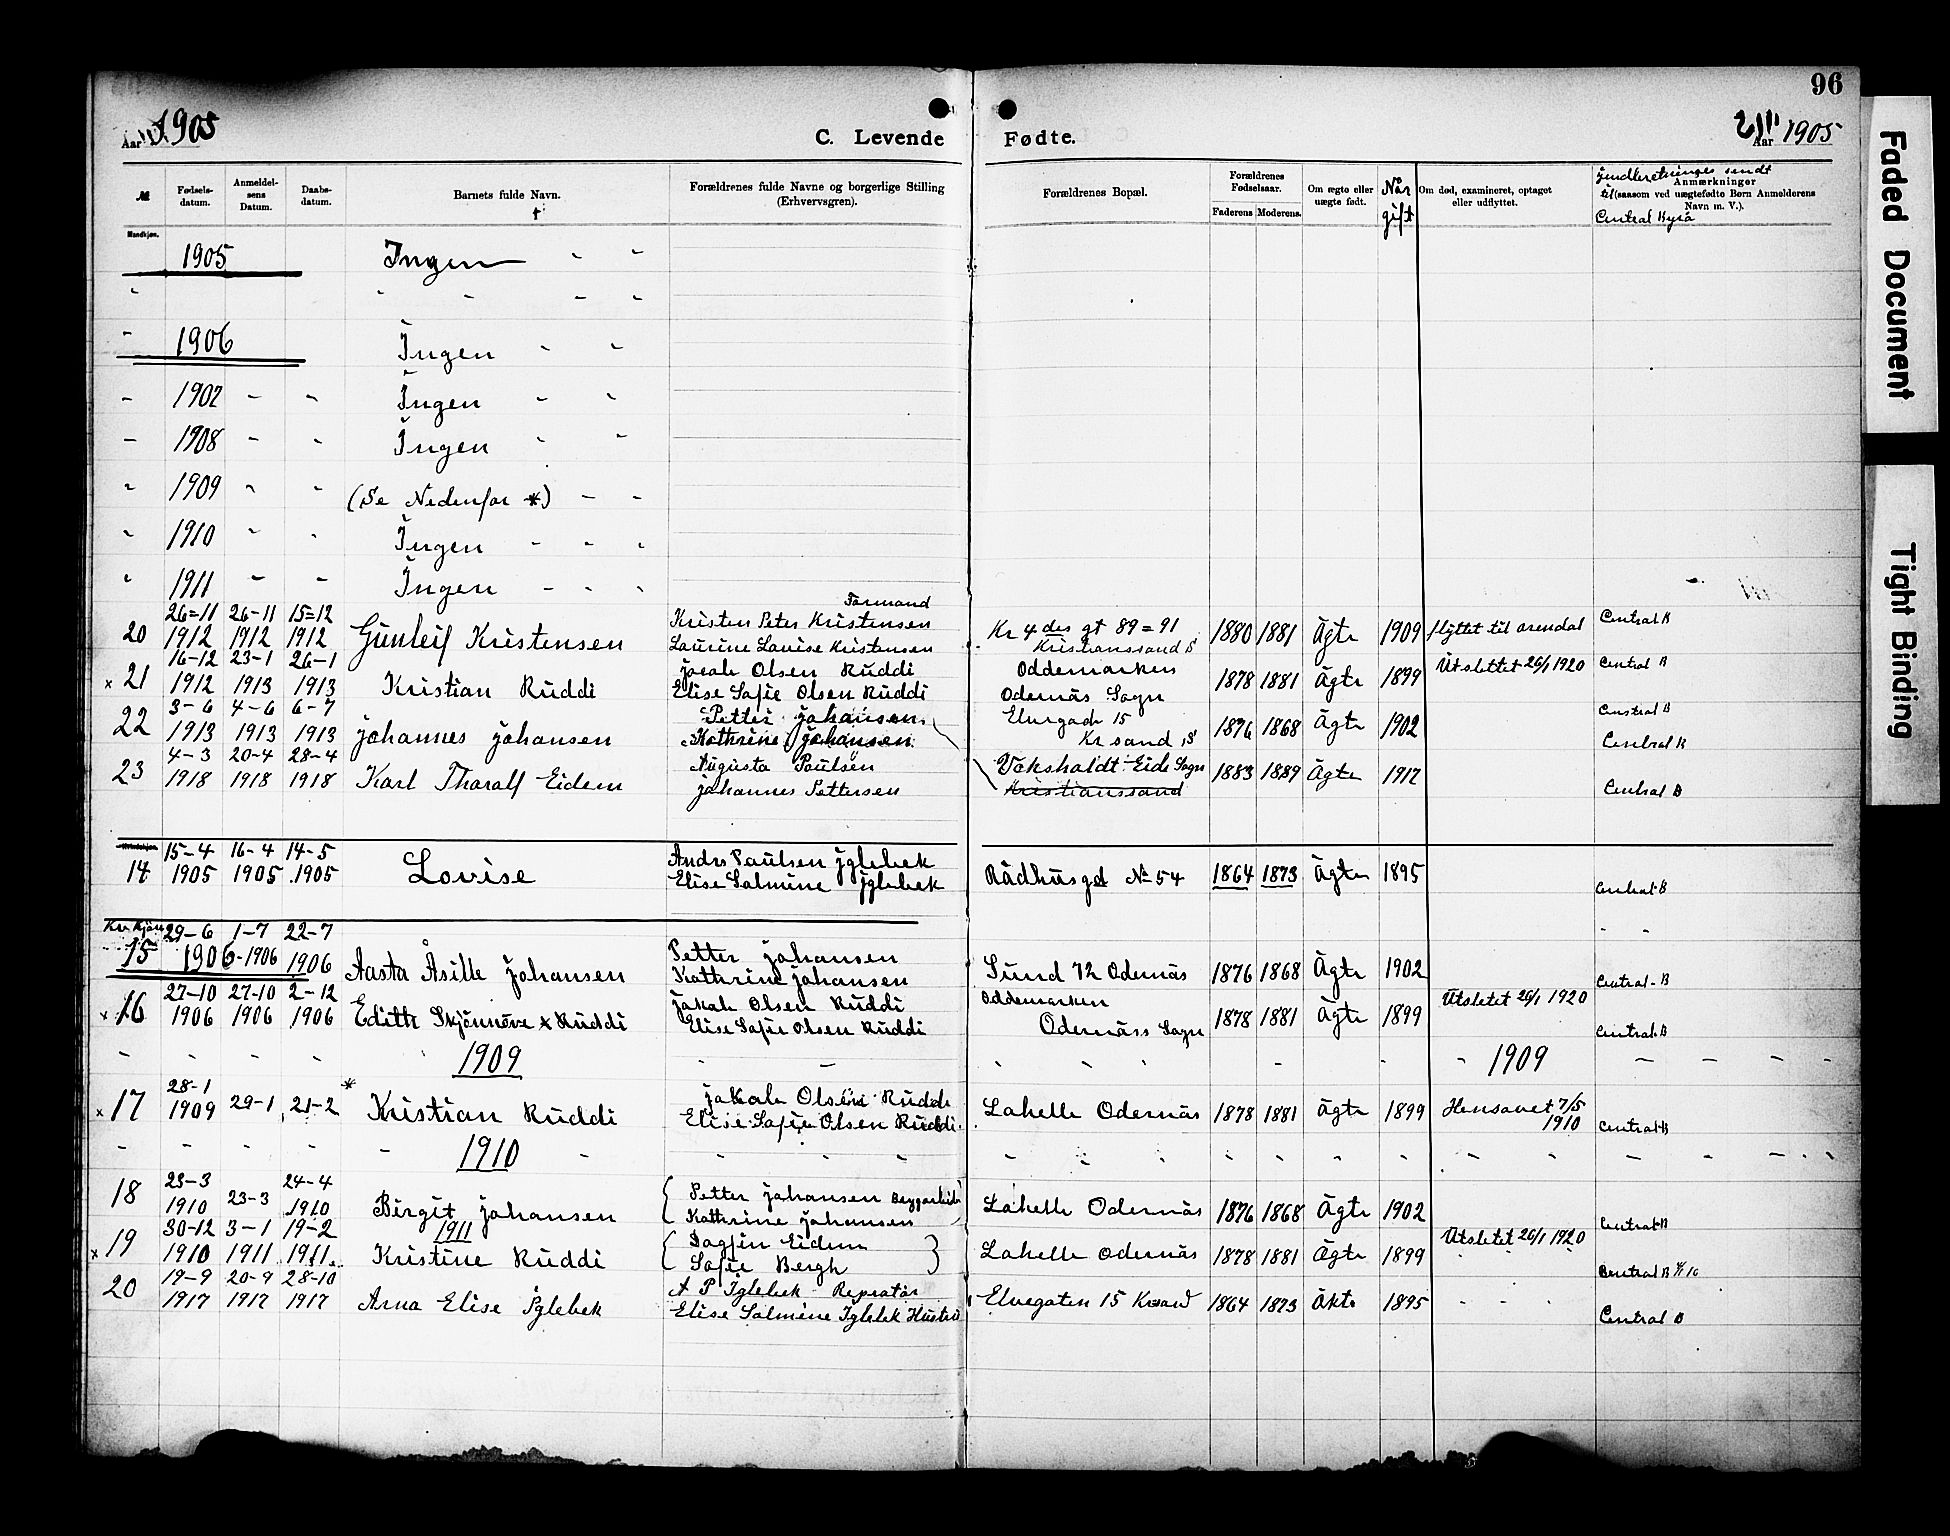 96
Aar 1905
C. Levende Fødte.
Aar 1905
№
Fødsels-datum.
Anmeldel-sens Datum.
Daabs-datum.
Barnets fulde Navn.
Forældrenes fulde Navne og borgerlige Stilling (Erhvervsgren).
Forældrenes Bopæl.
Forældrenes Fødselsaar.
Faderens Moderens.
Om ægte eller uægte født.
Når gift
Om død, examineret, optaget eller udflyttet.
Anmærkninger
(saasom ved uægtefødte Børn Anmelderens Navn m. V.).
Central Byrå
Mandkjøn.
1905 Ingen
1906 Ingen
1907 Ingen
1908 Ingen
1909 (Se Nedenfor *)
1910 Ingen
1911 Ingen
26=11 26-11 15=12 Formand
20 1912 1912 1912 Gunleif Kristensen Kristen Peter Kristensen Kr 4 des gt 89=91 1880 1881 Ägte 1909 flyttet til arendal Central B
Laurine Lovise Kristensen Kristianssand S
16-12 23-1 26-1 Jacob Olsen Ruddi Oddemarken Utslettet 26/1 1920 Central B
x 21 1912 1913 1913 Kristian Ruddi Elise Sofie Olsen Ruddi Odernäs Sogn 1878 1881 Ägte 1899
3-6 4-6 6-7 Petter Johansen Elvegade 15 Central B
22 1913 1913 1913 Johannes Johansen Kathrine Johansen Kr sand S 1876 1868 Ägte 1902 Central B
4-3 20-4 28-4 Augusta Paulsen Vaksholdt Eide Sogn
23 1918 1918 1918 Karl Tharalf Eidem Johannes Pettersen Kristianssand 1883 1889 Ägte 1917 Central B
15-4 16-4 14-5 Andrs Paulsen Jglebek
14 1905 1905 1905 Lovise Elise Salmine Jglebek Rådhusgd № 54 1864 1873 Ägte 1895 Central B
Kv kjön 29-6 1-7 22-7
15 1906 1906 1906 Aasta Åsille Johansen Petter Johansen Sund 72 Odernäs 1876 1868 Ägte 1902 Central-B
Kathrine Johansen
27-10 27-10 2-12 Jakob Olsen Ruddi Oddemarken Utsletet 26/1 1920
x 16 1906 1906 1906 Edith Skjönnöve x Ruddi Elise Sofie Olsen Ruddi Odernäss Sogn 1878 1881 Ägte 1899 Central.B
1909 1909
28-1 * Jakob Olsen Ruddi
x 17 1909 29-1 21-2 Kristian Ruddi Elise Sofie Olsen Ruddi Lahelle Odernäs 1878 1881 Ägte 1899 Hensovet 7/5 1910 Central-B
1910
23-3 24-4
18 1910 23-3 1910 Birgit Johansen Petter Johansen Lahelle Odernäs 1876 1868 Ägte 1902 Central-B
Kathrine Johansen
30-12 3-1 19-2 1911 Dagfin Eidem Utsletet 26/1 1920
x 19 1910 1911 1911 Kristine Ruddi Sofie Bergh Lahelle Odernäs 1878 1881 Ägte 1899 Central B
19-9 20-9 28-10 A P Iglebek Repratör
20 1917 1917 1917 Arna Elise Iglebek Elise Salmine Iglebek Hustru Elvegaten 15 Krsand 1864 1873 Äkte 1895 Central B
Faded Document
Tight Binding